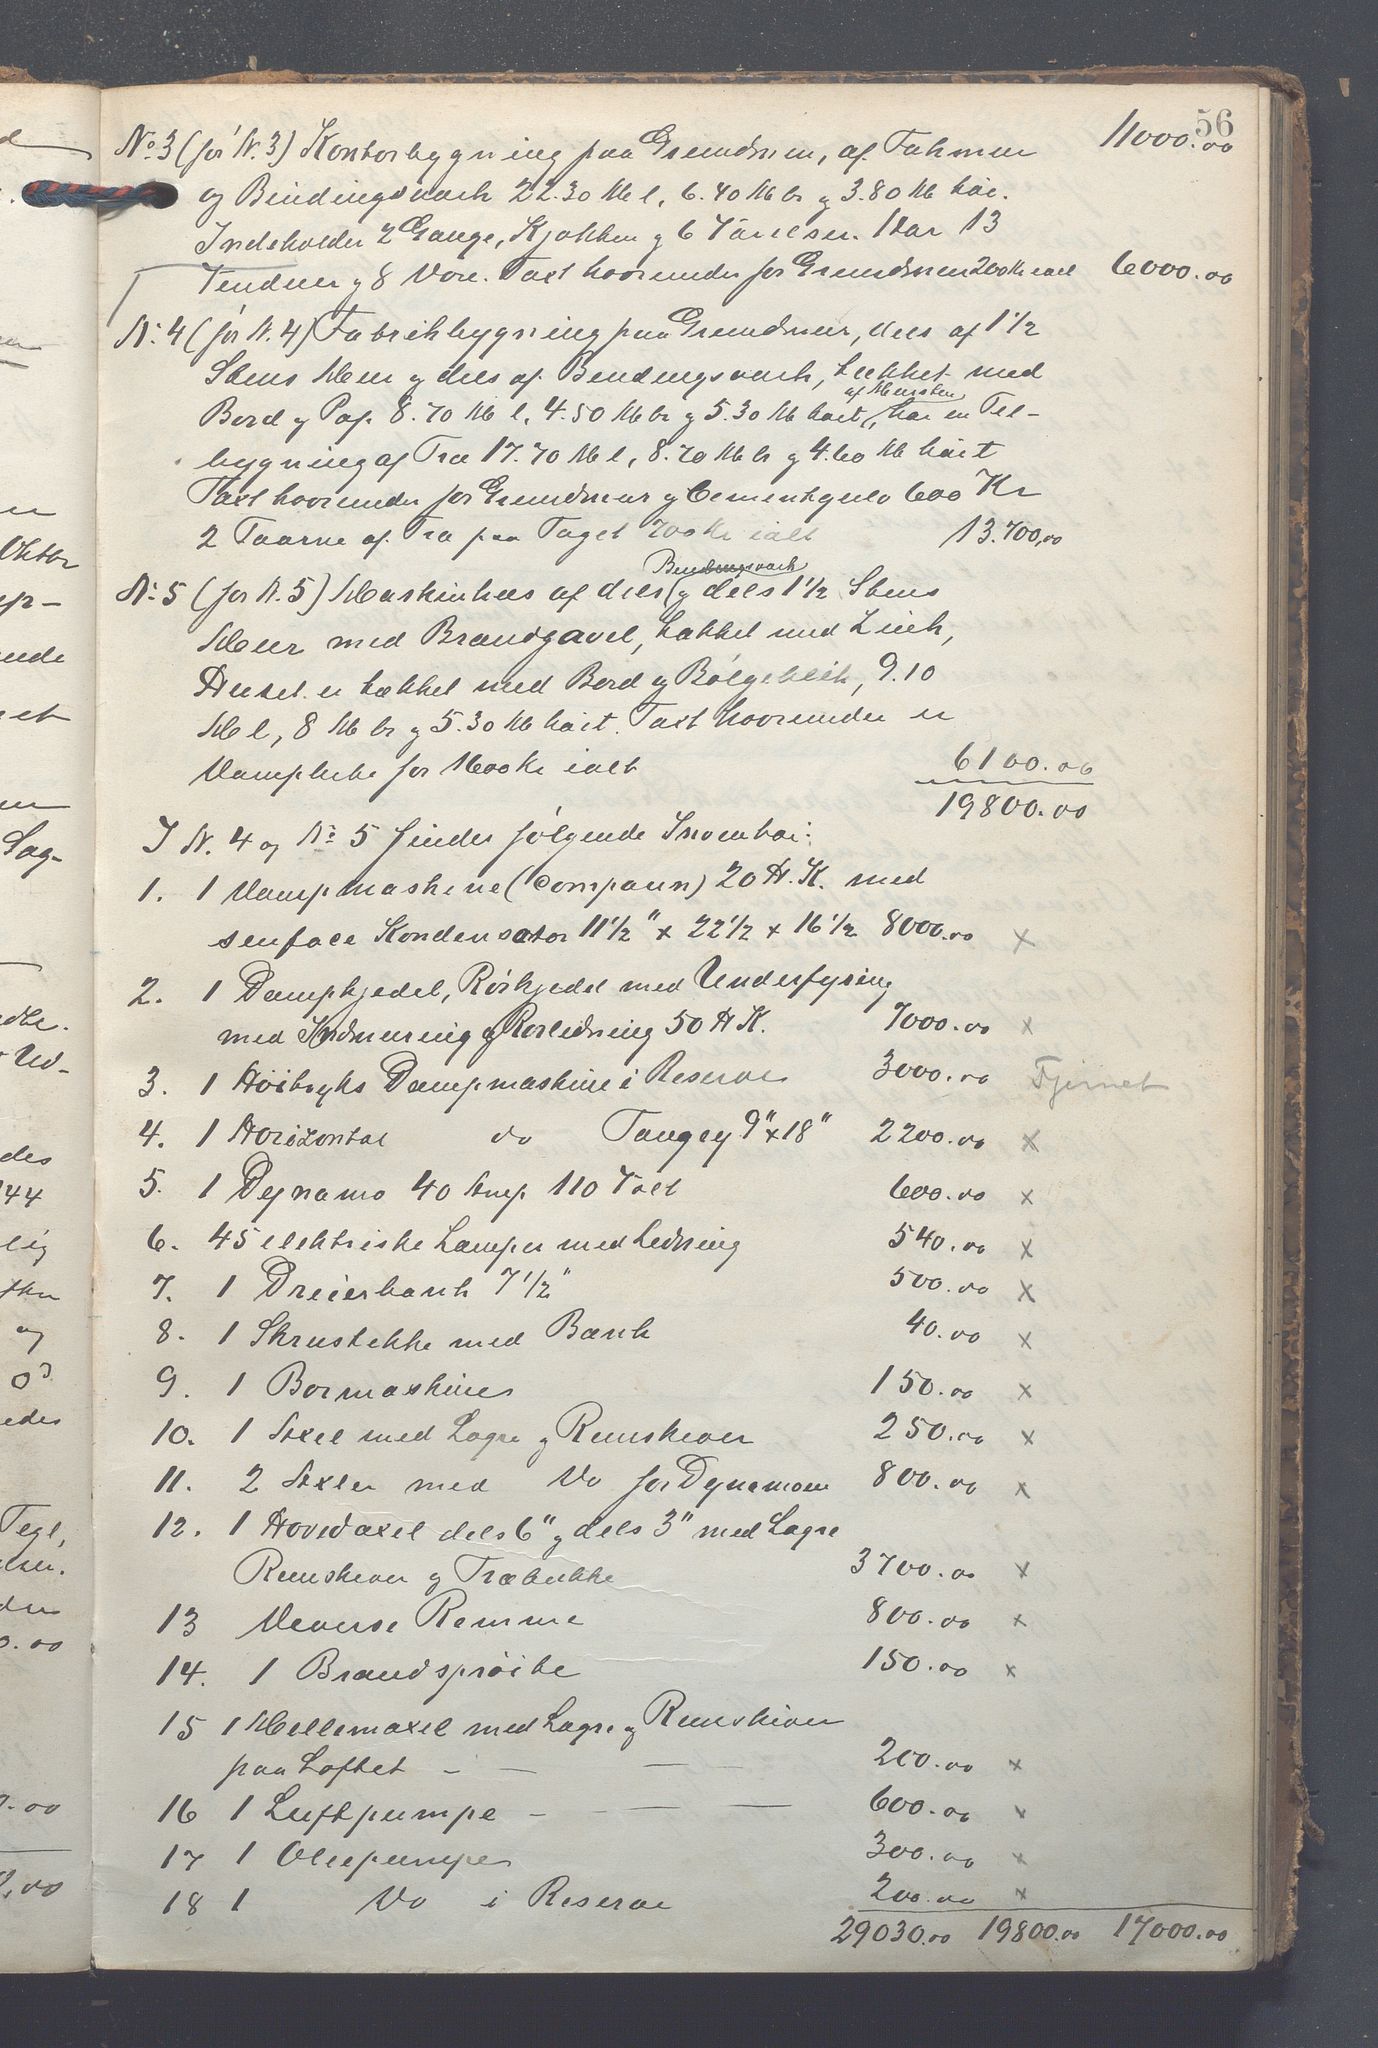 56
11000.00
No 3 (før N. 3) Kontorbygning paa Grundmur, af
og Bindingsværk 22.30 M l, 6.40 M br og 3.80 M høi.
Indeholder 2 Gange, Kjøkken og 6 Værelser. Har 13
Vinduer og 8 Døre. Taxt hvorunder for Grundmur 200 Kr ialt 6000.00
No 4 (før N. 4) Fabrikbygning paa Grundmur, dels af 1 1/2
Stens Mur og dels af Bindingsværk, tækket med
Bord og Pap. 8.70 M l, 4.50 M br og 5.30 M høit, har en Til-
af Mursten
bygning af Træ 17.70 M l, 8.70 M br og 4.60 M høit
Taxt hvorunder for Grundmur og Cementgulv 600 Kr
2 Taarne af Træ paa Taget 700 Kr ialt 13.700,00
No 5 (før N. 5) Maskinhus af dels Bindingsværk og dels 1 1/2 Stens
Mur med Brandgavel, takket med Zink,
Huset er tækket med Bord og Bølgeblik, 9.10
M l, 8 M br og 5.30 M høit. Taxt hvorunder er
for Kr ialt 6100.00
19800.00
I N. 4 og No 5 findes følgende Inventar:
1. 1 Dampmaskine (Compaun) 20 H.K. med
surface Kondensator 11 1/2" x 22 1/2 x 16 1/2 8000.00 x
2. 1 Dampkjedel, Rørkjedel med Underfyring
med Indmuring og Rørledning 50 H K. 7000.00 x
3. 1 Høitryks Dampmaskine i Reserve 3000.00 Fjernet
4. 1 Horizontal do Tangey 9" x 18" 2200.00 x
5. 1 Dynamo 40 Amp 110 Volt 600.00 x
6. 45 elektriske Lamper med Ledning 540.00 x
7. 1 Dreierbænk 7 1/2" 500.00 x
8. 1 Skrustikke med Bænk 40.00 x
9. 1 Bormaskine 150.00 x
10. 1 Axel med Lagre og Remskiver 250.00 x
11. 2 Axler med Do for Dynamoen 800.00 x
12. 1 Hovedaxel dels 6" og dels 3" med Lagre
Remskiver og Træbukke 3700.00 x
13 Diverse Remme 800.00 x
14. 1 Brandsprøite 150.00 x
15 1 Mellemaxel med Lagre og Remskiver
paa Loftet - — — — 200.00 x
16 1 Luftpumpe - — — — 600.00 x
17 1 Oliepumpe 300.00 x
18 1 Do i Reserve 200.00 x
29030.00 19800.00 17000.00